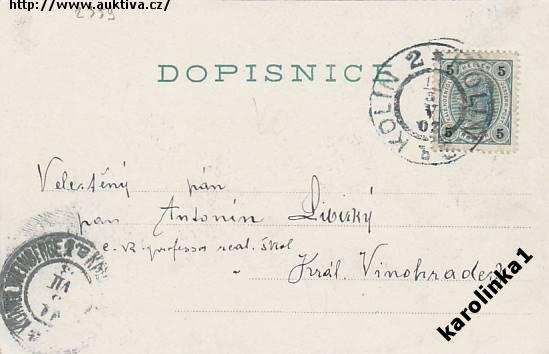 http://www.auktiva.cz/
2339
DOPISNICE
KOLIN 2 * KOLIN
V
02
5 5
5 5
Velectěný pán
pan Antonín Libický
c. k. professor reál. škol
Král. Vinohradech
karolinka1